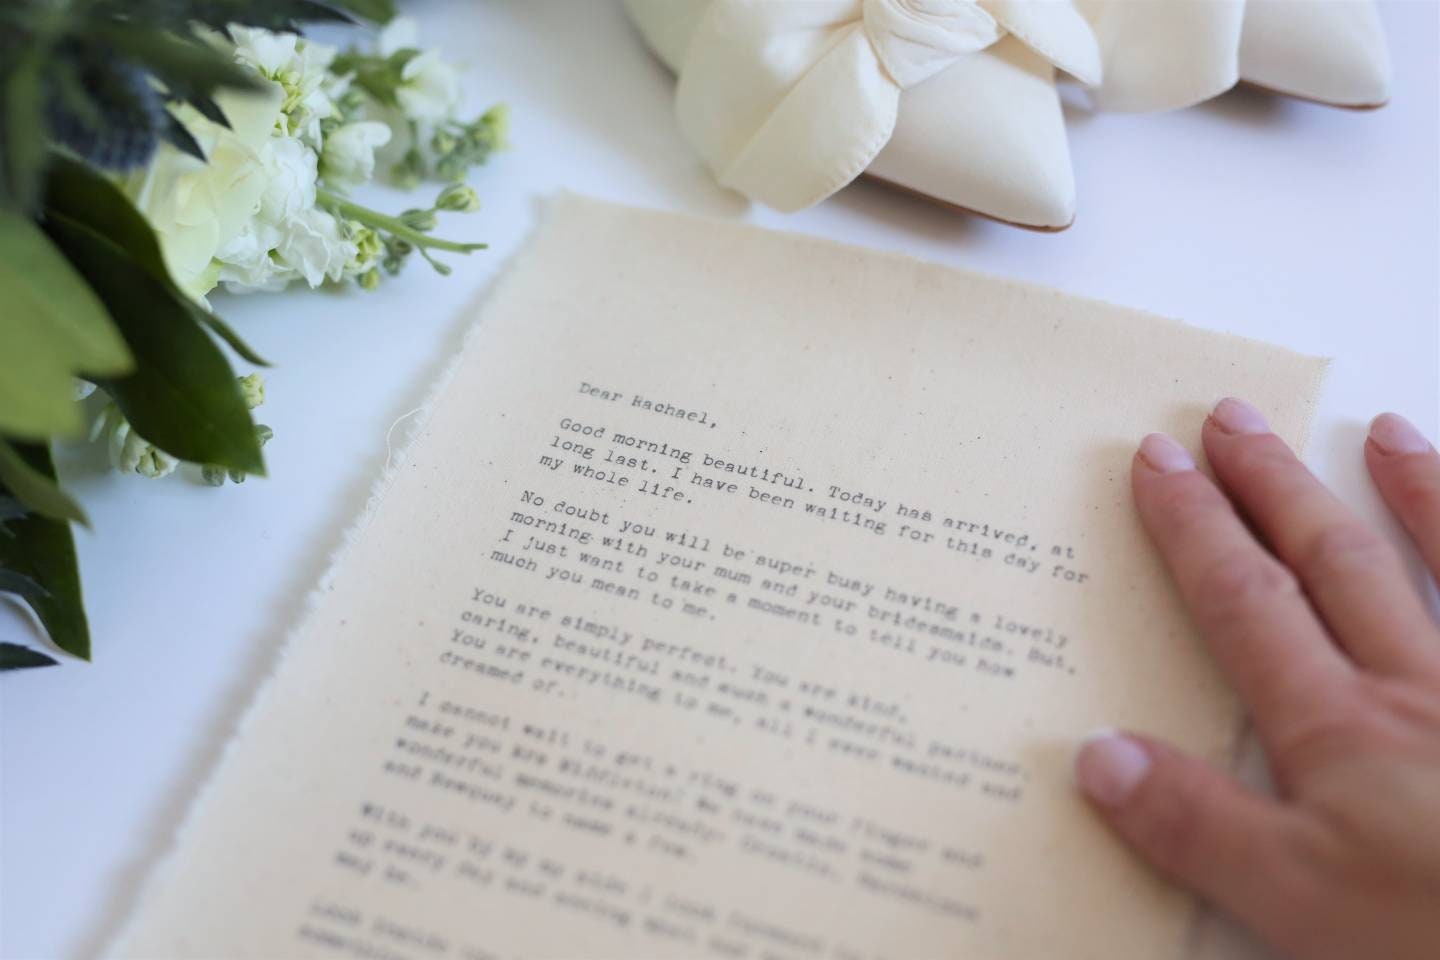 Dear Rachael,
Good morning beautiful. Today has arrived, at
long last. I have been waiting for this day for
my whole life.
No doubt you will be super busy having a lovely
morning with your mum and your bridesmaids. But,
I just want to take a moment to tell you how
much you mean to me.
You are simply perfect. You are kind,
caring, beautiful and such a wonderful partner.
You are everything to me, all I ever wanted and
dreamed of.
I cannot wait to get a ring on your finger and
make you Mrs We have made some
wonderful memories already; Croatia,
and to name a few.
With you by my side I look forward to
up every day and
may be.
Look inside the